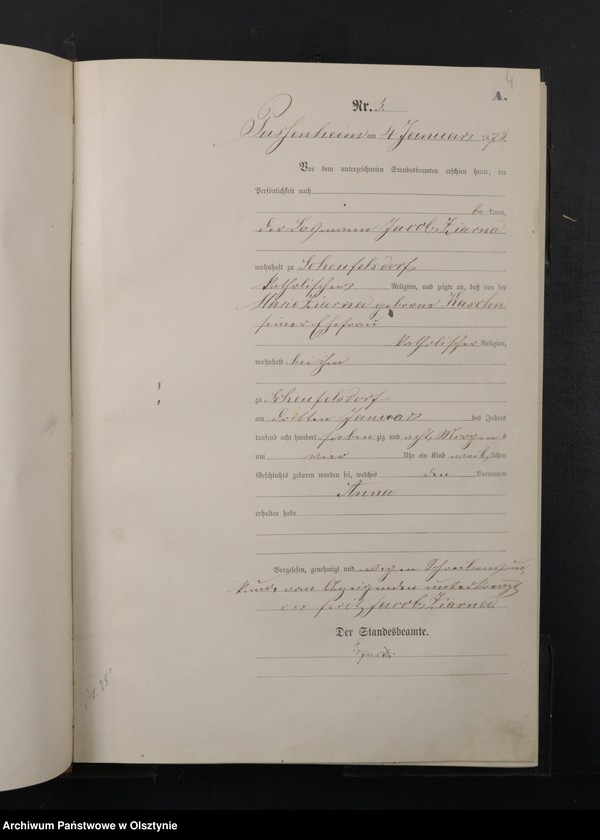 4
A.
Nr. 3.
Passenheim am 4 Januar 1878.
Vor dem unterzeichneten Standesbeamten erschien heute, der
Persönlichkeit nach
be kannt,
der Losmann Jacob Ziarna
wohnhaft zu Scheufelsdorf
katholischer Religion, und zeigte an, daß von der
Marie Ziarna geborene Kascha
seiner Ehefrau
katholischer Religion,
wohnhaft bei ihm
zu Scheufelsdorf
am dritten Januar des Jahres
tausend acht hundert sieben zig und acht Morgens
um vier Uhr ein Kind weib lichen
Geschlechts geboren worden sei, welches den Vornamen
Anna
erhalten habe
Vorgelesen, genehmigt und wegen Schreibensun
kunde vom Anzeigenden unterkreuzt
Jacob Ziarna
Der Standesbeamte.
Archiwum Państwowe w Olsztynie